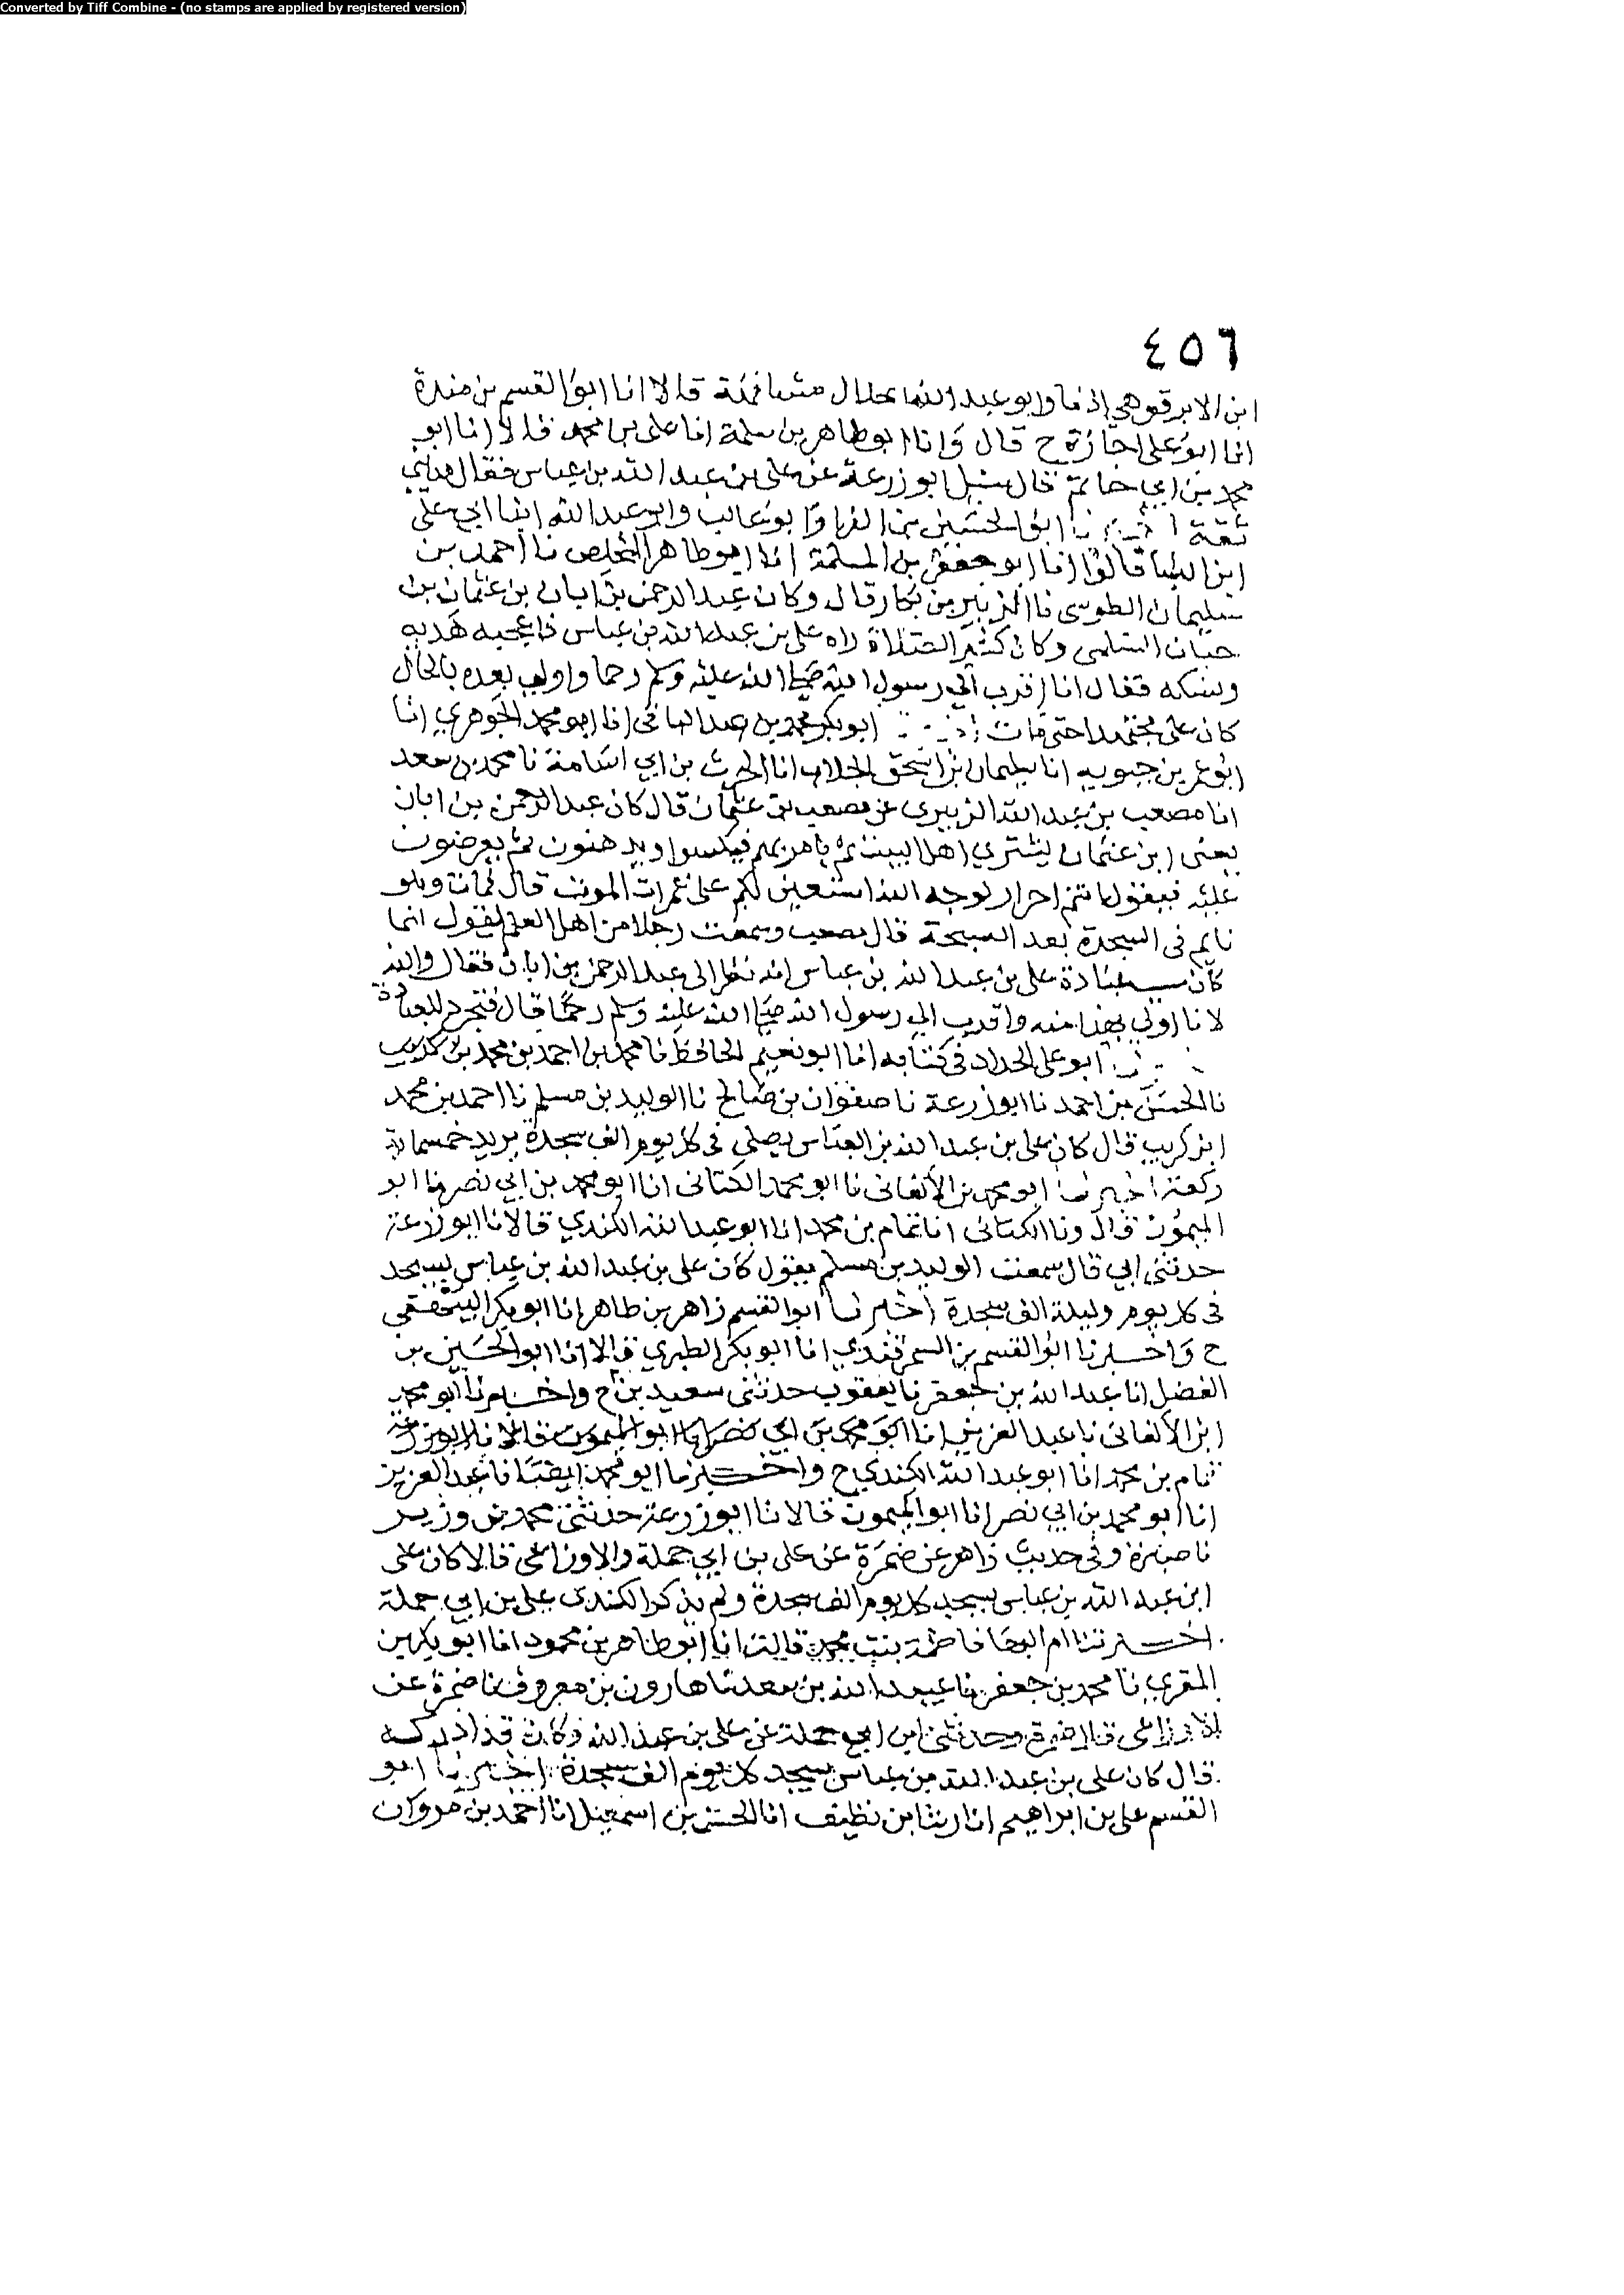 Converted by Tiff Combine - (no stamps are applied by registered version)
٤٥٦
ابن الابرقوهي اذنا وابو عبد الله الخلال مشافهة قالا انا ابو القسم بن مندة
انا ابو علي اجازة ح قال وانا ابو طاهر بن سلمة انا علي بن محمد قالا انا ابو
محمد بن ابي حاتم قال سئل ابو زرعة عن علي بن عبد الله بن عباس فقال مديني
ثقة اخبرنا ابو الحسين بن الفرا وابو غالب وابو عبد الله ابنا ابي علي
ابن البنا قالوا انا ابو جعفر بن المسلمة انا ابو طاهر المخلص نا احمد بن
سليمان الطوسي نا الزبير بن بكار قال وكان عبد الرحمن بن ابان بن عثمان بن
حبان السلمي وكان كثير الصلاة راه علي بن عبد الله بن عباس فاعجبه هديه
ونسكه فقال انا اقرب الي رسول الله صلى الله عليه وسلم رحما واولى بهذه بالحال
كان علي مجتهدا حتى مات ابو بكر محمد بن عبد الباقى انا ابو محمد الجوهري انا
ابو عمر بن حيويه انا سليمان بن اسحق الجلاب انا الحرث بن ابي اسامة نا محمد بن سعد
انا مصعب بن عبد الله الزبيرى عن مصعب بن عثمان قال كان عبد الرحمن بن ابان
يعنى ابن عثمان يشتري اهل البيت ثم يامر بهم فيكسوا ويدهنون ثم يعرضون
عليه فيقول انتم احرار لوجه الله استعين بكم على غمرات الموت قال فمات وهو
نايم فى السجدة بعد السبحة قال مصعب وسمعت رجلا من اهل العلم يقول انما
كان سبب عبادة علي بن عبد الله بن عباس انه نظر الى عبد الرحمن بن ابان فقال والله
لانا اولي بهذا منه واقرب الي رسول الله صلى الله عليه وسلم رحما قال فتجرد للعبادة
ابو علي الحداد في كتابه انا ابو نعيم الحافظ نا محمد بن احمد بن محمد بن كريب
نا الحسن بن احمد نا ابو زرعة نا صفوان بن صالح نا الوليد بن مسلم نا احمد بن محمد
ابن كريب قال كان علي بن عبد الله بن العباس يصلي في كل يوم الف سجدة يريد خمسماية
ركعة اخبرنا ابو محمد بن الاكفاني نا ابو محمد الكتاني انا ابو محمد بن ابي نصر انا ابو
الميمون قال ونا الكتاني انا تمام بن محمد انا ابو عبد الله الكندي قالا نا ابو زرعة
حدثني ابي قال سمعت الوليد بن مسلم يقول كان علي بن عبد الله بن عباس يسجد
في كل يوم وليلة الف سجدة اخبرنا ابو القسم زاهر بن طاهر انا ابو بكر البيهقي
ح واخبرنا ابو القسم بن السمرقندي انا ابو بكر الطبري قالا انا ابو الحسين بن
الفضل انا عبد الله بن جعفر نا يعقوب حدثني سعيد بن ح واخبرنا ابو محمد
ابن الاكفاني نا عبد العزيز انا ابو محمد بن ابي نصر انا ابو الميمون قالا نا ابو زرعة
تمام بن محمد انا ابو عبد الله الكندي ح واخبرنا ابو محمد ايضا نا عبد العزيز
انا ابو محمد بن ابي نصر انا ابو الميمون قالا نا ابو زرعة حدثني محمد بن وزير
نا ضمرة وفي حديث زاهر عن ضمرة عن علي بن ابي جملة والاوزاعي قالا كان علي
ابن عبد الله بن عباس يسجد كل يوم الف سجدة ولم يذكر الكندي علي بن ابي جملة
اخبرتنا ام البها فاطمة بنت محمد قالت انا ابو طاهر بن محمود انا ابو بكر بن
المقري نا محمد بن جعفر نا عبيد الله بن سعد نا هارون بن معروف نا ضمرة عن
الاوزاعي قال ضمرة وحدثني ابن ابي جملة عن علي بن عبد الله وكان قد ادركه
قال كان علي بن عبد الله بن عباس يسجد كل يوم الف سجدة اخبرنا ابو
القسم علي بن ابراهيم انا رشا بن نظيف انا الحسن بن اسمعيل انا احمد بن مروان